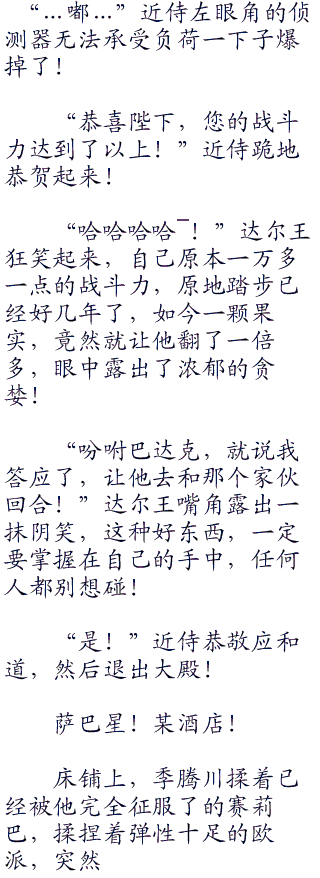 “…嘟…”近侍左眼角的侦
测器无法承受负荷一下子爆
掉了！
“恭喜陛下，您的战斗
力达到了以上！”近侍跪地
恭贺起来！
“哈哈哈哈¯！”达尔王
狂笑起来，自己原本一万多
一点的战斗力，原地踏步已
经好几年了，如今一颗果
实，竟然就让他翻了一倍
多，眼中露出了浓郁的贪
婪！
“吩咐巴达克，就说我
答应了，让他去和那个家伙
回合！”达尔王嘴角露出一
抹阴笑，这种好东西，一定
要掌握在自己的手中，任何
人都别想碰！
“是！”近侍恭敬应和
道，然后退出大殿！
萨巴星！某酒店！
床铺上，季腾川揉着已
经被他完全征服了的赛莉
巴，揉捏着弹性十足的欧
派，突然